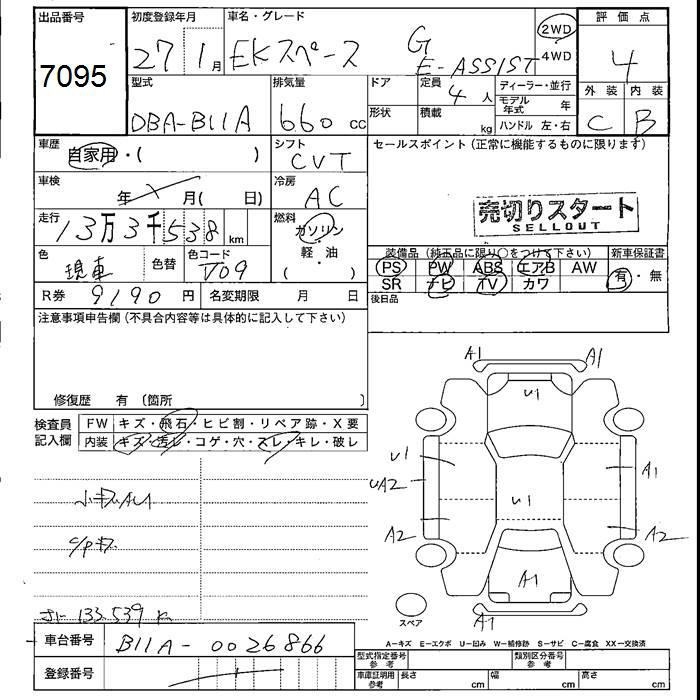 出品番号 初度登録年月 車名・グレード 評価点
7095 27 1月 EKスペース G E-ASSIST 2WD 4WD 4
型式 排気量 ドア 定員 ディーラー・並行 外装 内装
DBA-B11A 660 cc 形状 4人 積載 kg モデル年式 年 ハンドル 左・右 C B
車歴 自家用・( ) シフト CVT セールスポイント (正常に機能するものに限ります)
車検 年 月( 日) 冷房 AC
売切りスタート
SELLOUT
走行 13万3千538 km 燃料 ガソリン 軽・油 ( )
色 現車 色替 色コード V09
装備品 (純正品に限り○をつけて下さい) 新車保証書
PS PW ABS エアB AW 有・無
SR ナビ TV カワ
R券 9190 円 名変期限 月 日 後日品
注意事項申告欄 (不具合内容等は具体的に記入して下さい)
修復歴 有 〔箇所 〕
検査員記入欄 FW キズ・飛石・ヒビ割・リペア跡・X要
内装 キズ・汚レ・コゲ・穴・スレ・キレ・破レ
A1 A1
U1
U1 A1
UA2 U1
A2 A2
A1
A1
小キズAU
C/Pキズ
133.539 K
スペア
A-キズ E-エクボ U-凹み W-補修跡 S-サビ C-腐食 XX-交換済
車台番号 B11A-0026866
型式指定番号 参考 類別区分番号 参考
登録番号
車庫証明用 参考 長さ cm 幅 cm 高さ cm